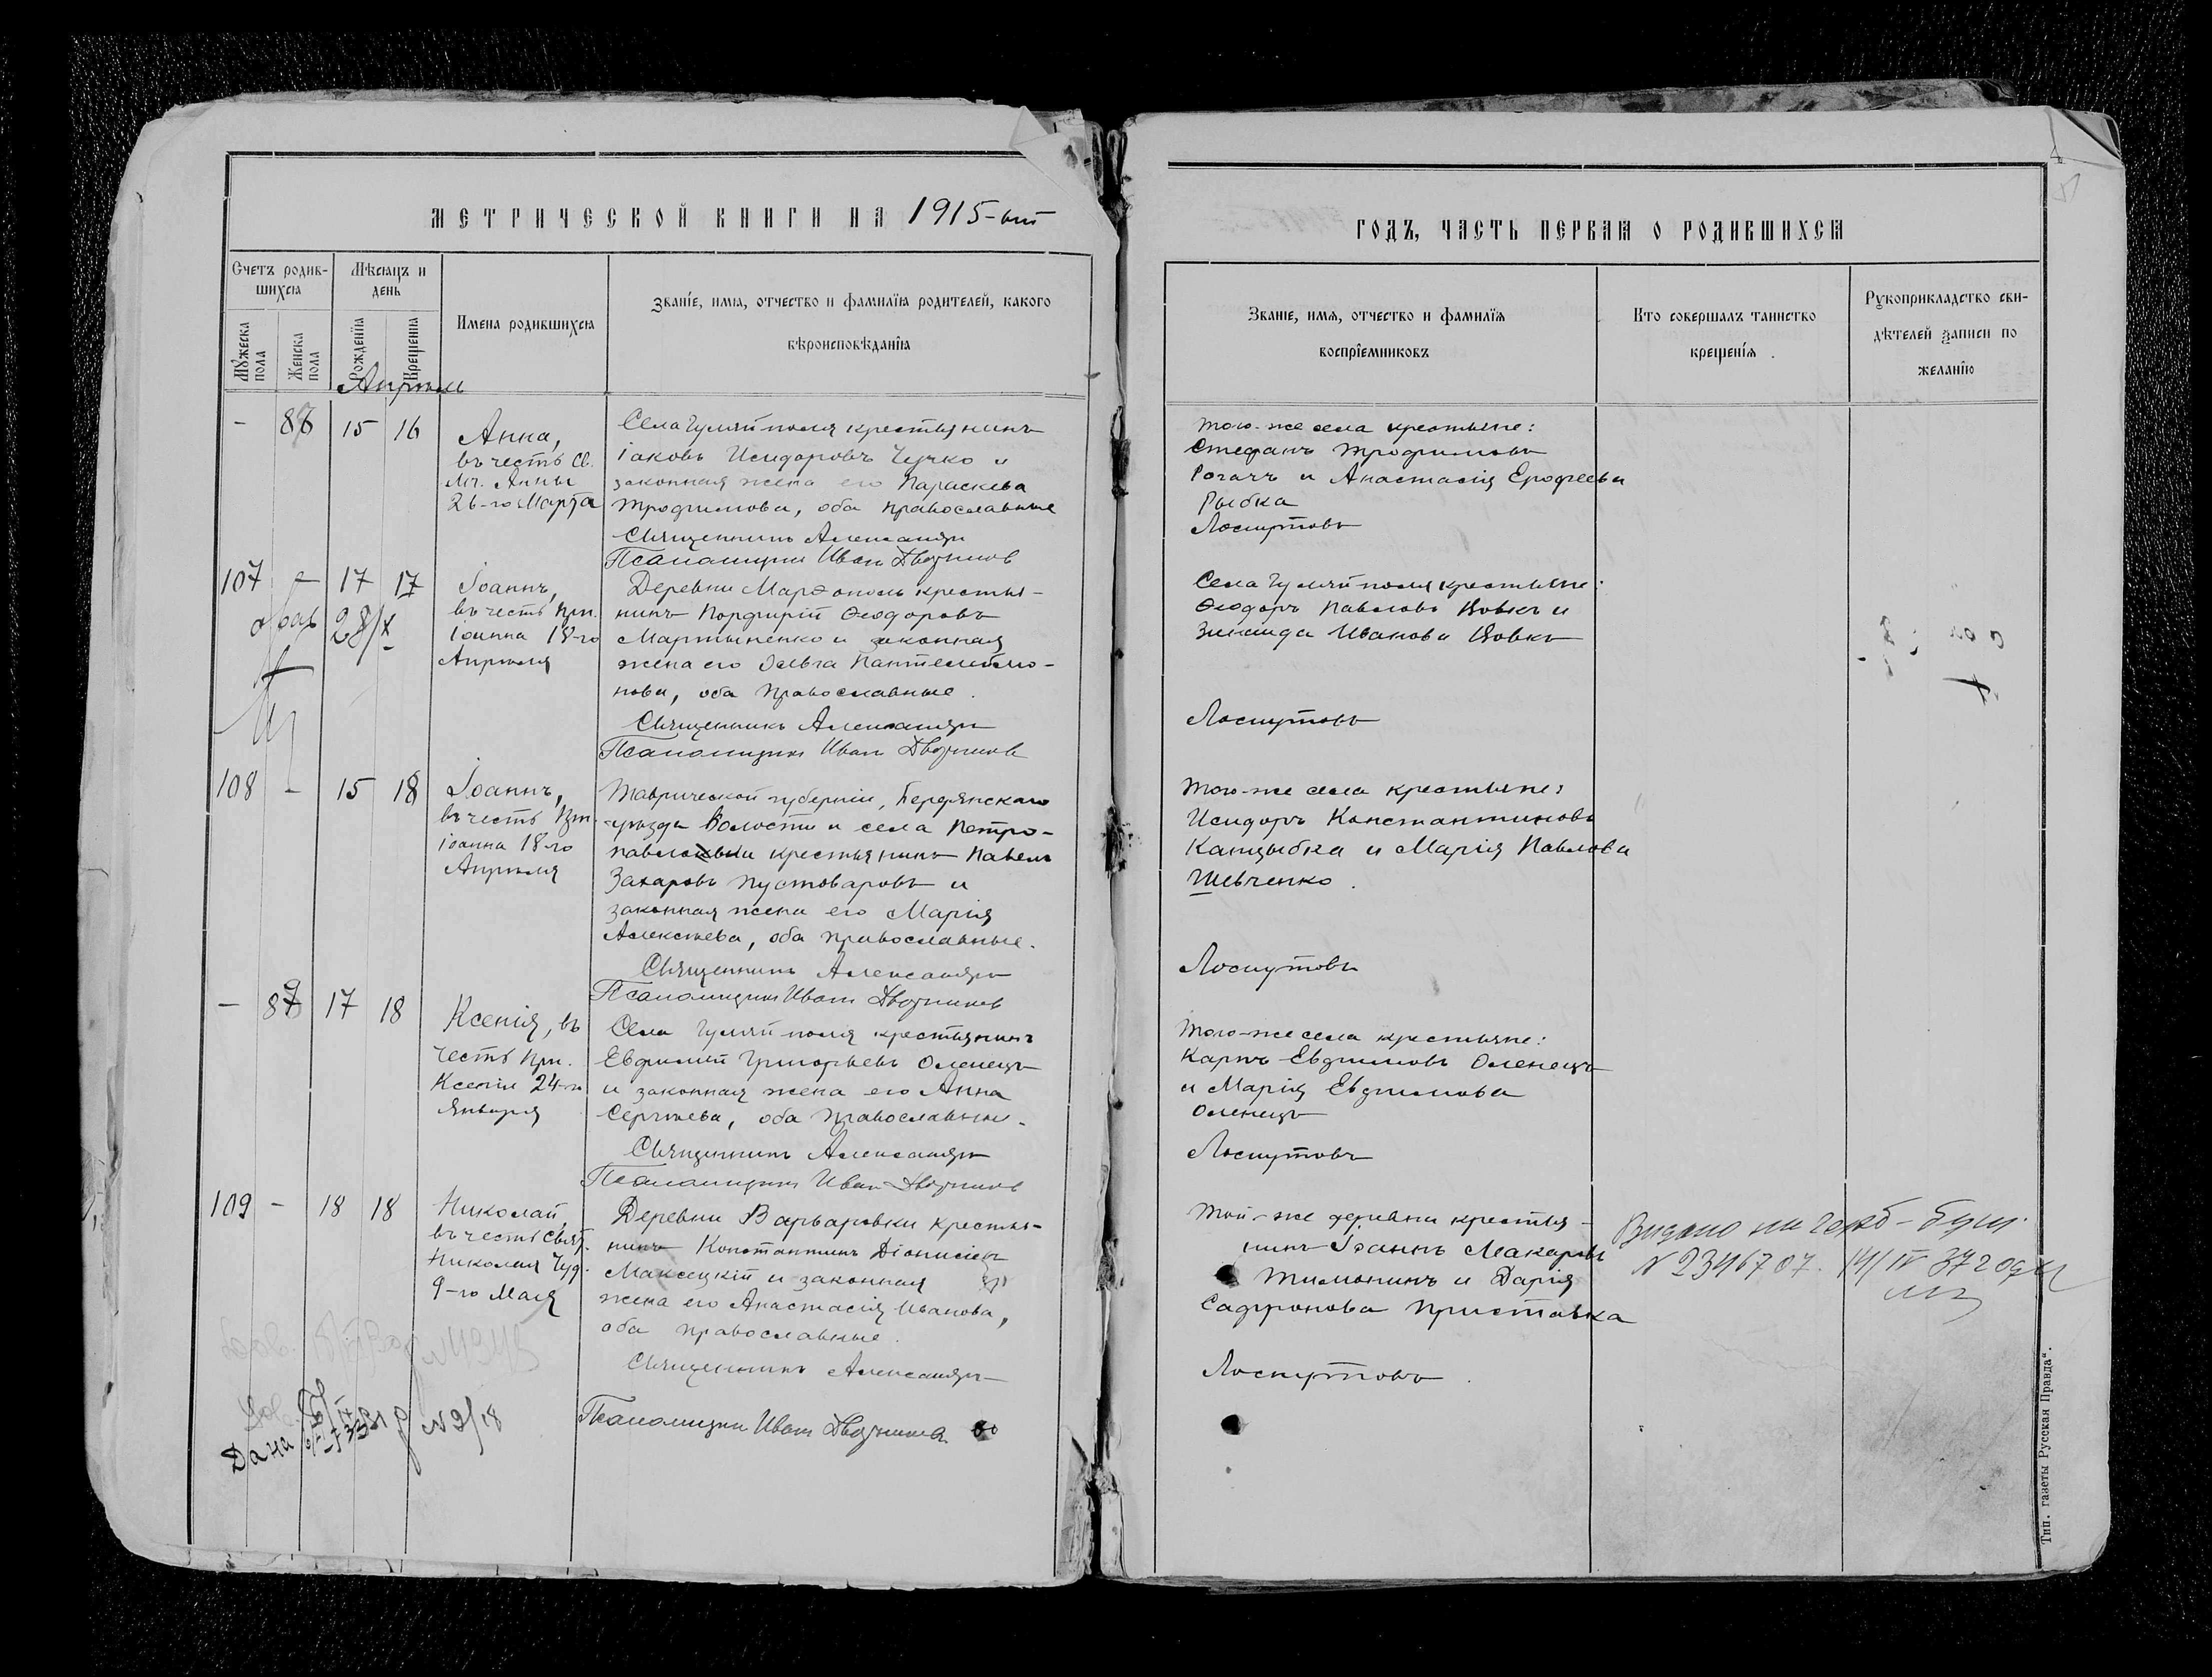 МЕТРИЧЕСКОЙ КНИГИ НА 1915-ый
Счетъ родив-
шихся
Мѣсяцъ и
день
Имена родившихся
Званіе, имя, отчество и фамилія родителей, какого
вѣроисповѣданія
Мужеска пола
Женска пола
Рожденія
Крещенія
Апрѣль
- 15 16
Анна,
въ честь св.
мч. Анны
26-го Марта
Села Гуляйполя крестьянинъ
Іаковъ Исидоровъ Чучко и
законная жена его Параскева
Трофимова, оба православные
Священникъ Александръ
Псаломщикъ Иванъ Дворников
107 - 17 17
28/X
Іоаннъ,
въ честь прп.
Іоанна 18-го
Апрѣля
Деревни Марѳополь крестья-
нинъ Порфирій Ѳеодоровъ
Мартыненко и законная
жена его Ольга Пантелеймо-
нова, оба православные.
Священникъ Александръ
Псаломщикъ Иван Дворников
108 - 15 18
Іоаннъ,
въ честь прп.
Іоанна 18-го
Апрѣля
Таврической губерніи, Бердянскаго
уѣзда Волости и села Петро-
павловки крестьянинъ Павелъ
Захаровъ Пустоваровъ и
законная жена его Марія
Алексѣева, оба православные.
Священникъ Александръ
Псаломщикъ Иван Дворников
- 17 18
Ксенія, въ
честь прп.
Ксеніи 24-го
Января
Села Гуляйполя крестьянинъ
Евфимій Григорьевъ Оленецъ
и законная жена его Анна
Сергѣева, оба православные.
Священникъ Александръ
Псаломщикъ Иван Дворников
109 - 18 18
Николай,
въ честь Свят.
Николая Чуд.
9-го Мая
Деревни Варваровки крестья-
нинъ Константинъ Діонисіевъ
и законная
жена его Анастасія Иванова,
оба православные.
Священникъ Александръ
Псаломщикъ Иван Дворников
Дана
N2/18
ГОДЪ, ЧАСТЬ ПЕРВАЯ О РОДИВШИХСЯ
Званіе, имя, отчество и фамилія
воспріемниковъ
Кто совершалъ таинство
крещенія.
Рукоприкладство сви-
дѣтелей записи по
желанію
Того-же села крестьяне:
Стефанъ Трофимовъ
Рогачъ и Анастасія Ерофеева
Рыбка
Лоскутовъ
Села Гуляйполя крестьяне:
Ѳеодоръ Павловъ Вовкъ и
Зинаида Иванова Вовкъ
Лоскутовъ
Того-же села крестьяне:
Исидоръ Константиновъ
Канцыбка и Марія Павлова
Шевченко.
Лоскутовъ
Того-же села крестьяне:
Карпъ Евфимовъ Оленецъ
и Марія Евфимова
Оленецъ
Лоскутовъ
Той-же деревни крестья-
нинъ Іоаннъ Макаровъ
Тимонинъ и Дарія
Сафронова Приставка
Лоскутовъ
Видано на
N 2346707. 14/IV 37
Тип. газеты Русская Правда".